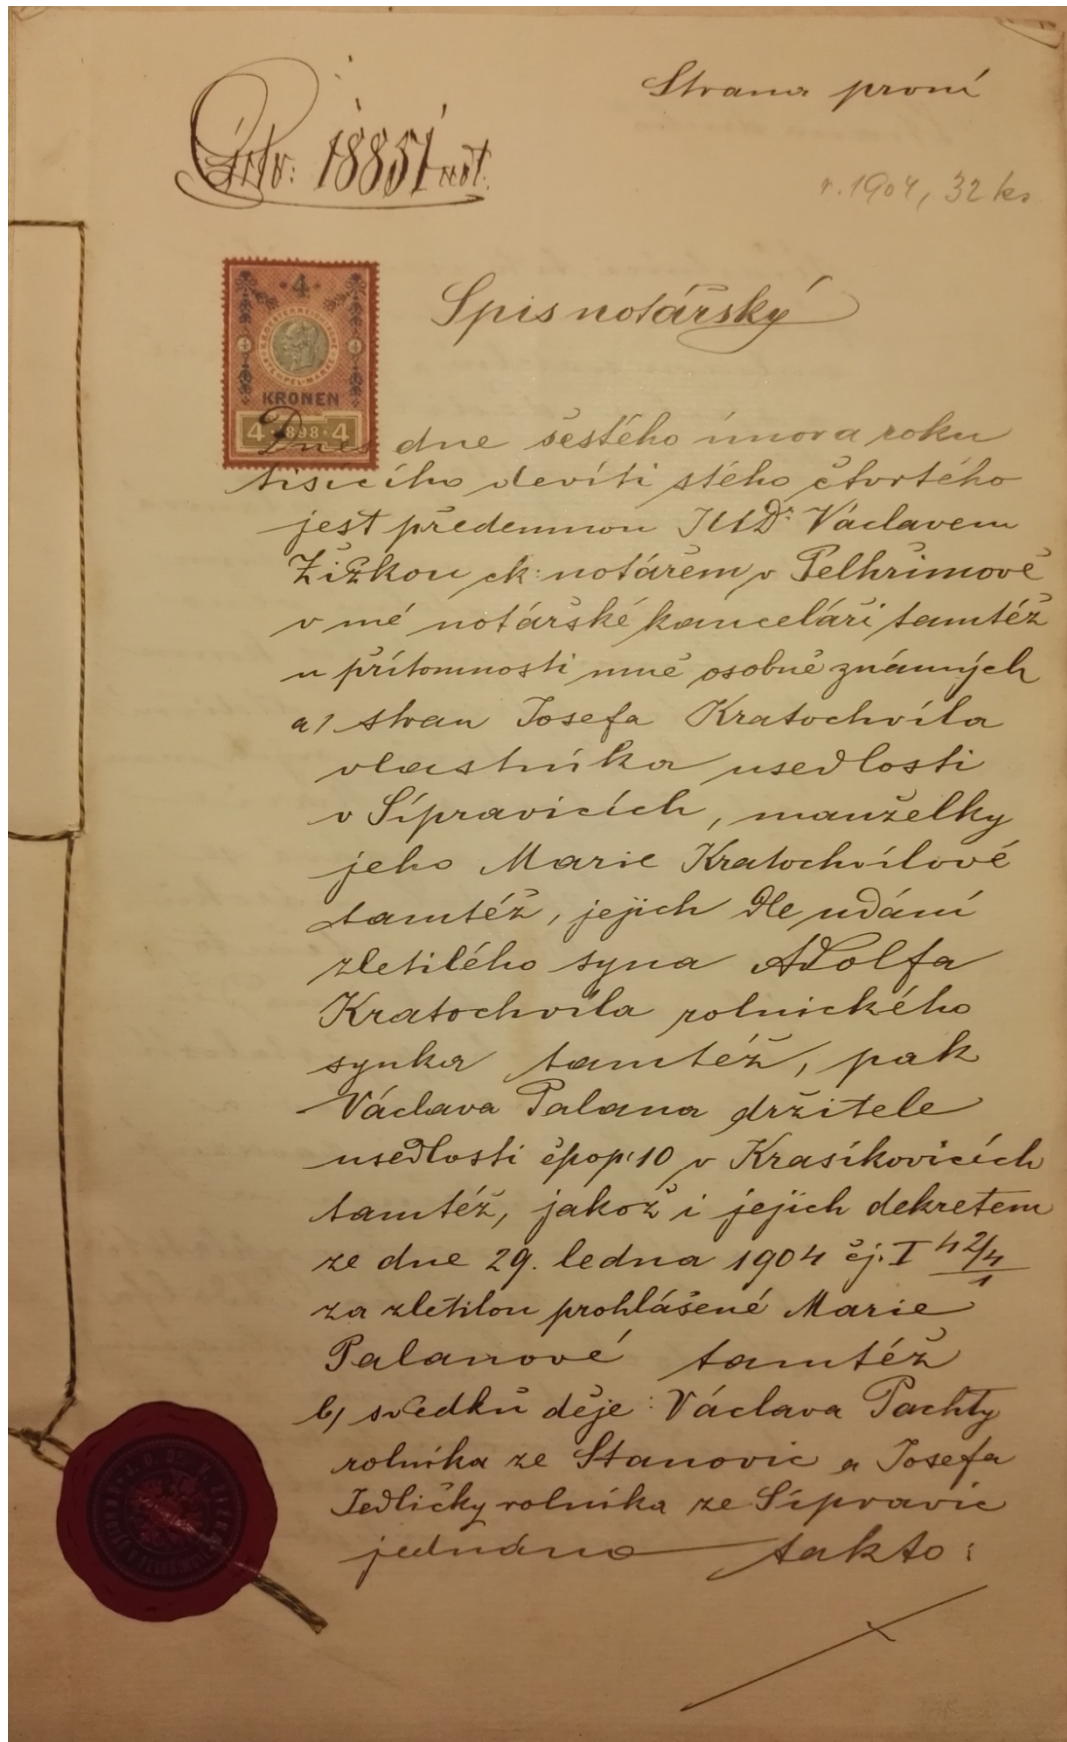 Strana první
Číslo: 18851 not.
r. 1904, 32 ks
Spis notářský
4
KRONEN
4 898 4
Dnes dne šestého února roku
tisícího devíti stého čtvrtého
jest předemnou JUDr Václavem
Žižkou ck: notářem v Pelhřimově
v mé notářské kanceláři tamtéž
u přítomnosti mně osobně známých
a/ stran Josefa Kratochvíla
vlastníka usedlosti
v Sípravicích, manželky
jeho Marie Kratochvílové
tamtéž, jejich dle udání
zletilého syna Adolfa
Kratochvíla rolnického
synka tamtéž, pak
Václava Palana držitele
usedlosti čpop: 10 v Krasíkovicích
tamtéž, jakož i jejich dekretem
ze dne 29. ledna 1904 čj. I 42/4
1
za zletilou prohlášené Marie
Palanové tamtéž
b/ svědků děje: Václava Pachty
rolníka ze Stanovic a Josefa
Jedličky rolníka ze Sípravic
jednáno takto: